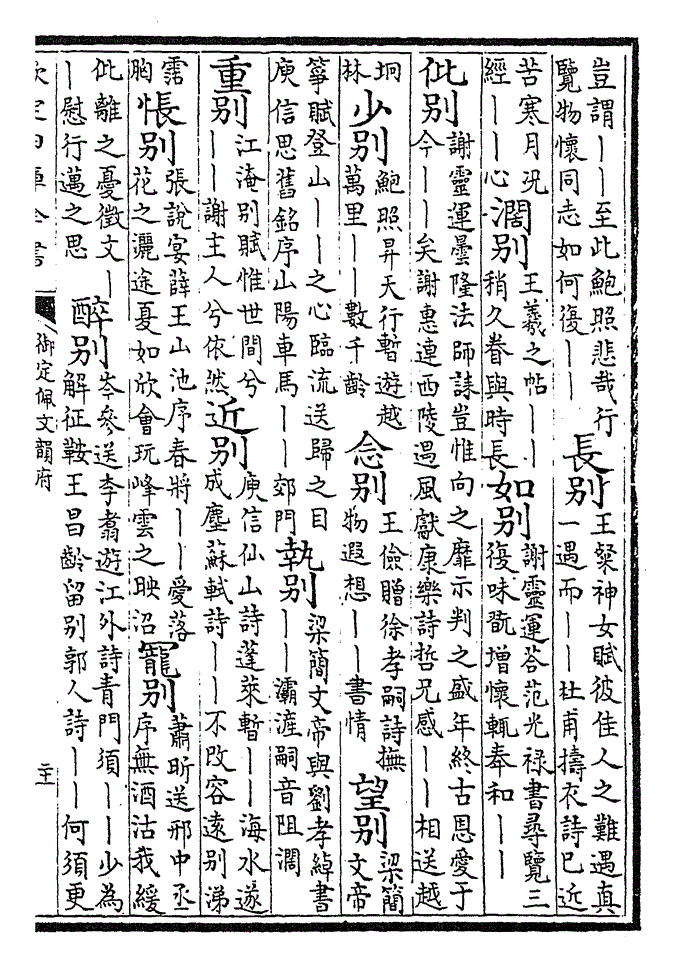 豈謂丨丨至此鮑照悲哉行
覽物懷同志如何復丨丨
長别
王粲神女賦彼佳人之難遇真
一遇而丨丨杜甫擣衣詩已近
苦寒月況
經丨丨心
濶别
王羲之帖丨丨
稍久眷與時長
如别
謝靈運荅范光禄書尋覽三
復味翫增懷輒奉和丨丨
仳别
謝靈運曇隆法師誄豈惟向之靡示判之盛年終古恩愛于
今丨丨矣謝惠連西陵遇風獻康樂詩哲兄感丨丨相送越
坰
林
少别
鮑照昇天行暫遊越
萬里丨丨數千齡
念别
王儉贈徐孝嗣詩撫
物遐想丨丨書情
望别
梁簡
文帝
箏賦登山丨丨之心臨流送歸之目
庾信思舊銘序山陽車馬丨丨郊門
執别
梁簡文帝與劉孝綽書
丨丨灞滻嗣音阻濶
重别
江淹别賦惟世間兮
丨丨謝主人兮依然
近别
庾信仙山詩蓬萊暫丨丨海水遂
成塵蘇軾詩丨丨不改容遠别涕
霑
胸
悵别
張說宴薛王山池序春將丨丨愛落
花之灑途夏如欣會玩峰雲之映沼
寵别
蕭昕送邢中丞
序無酒沽我緩
仳離之憂徵文丨
丨慰行邁之思
醉别
岑參送李翥遊江外詩青門須丨丨少為
解征鞍王昌齡留别郭八詩丨丨何須更
欽定四庫全書
御定佩文韻府
二十